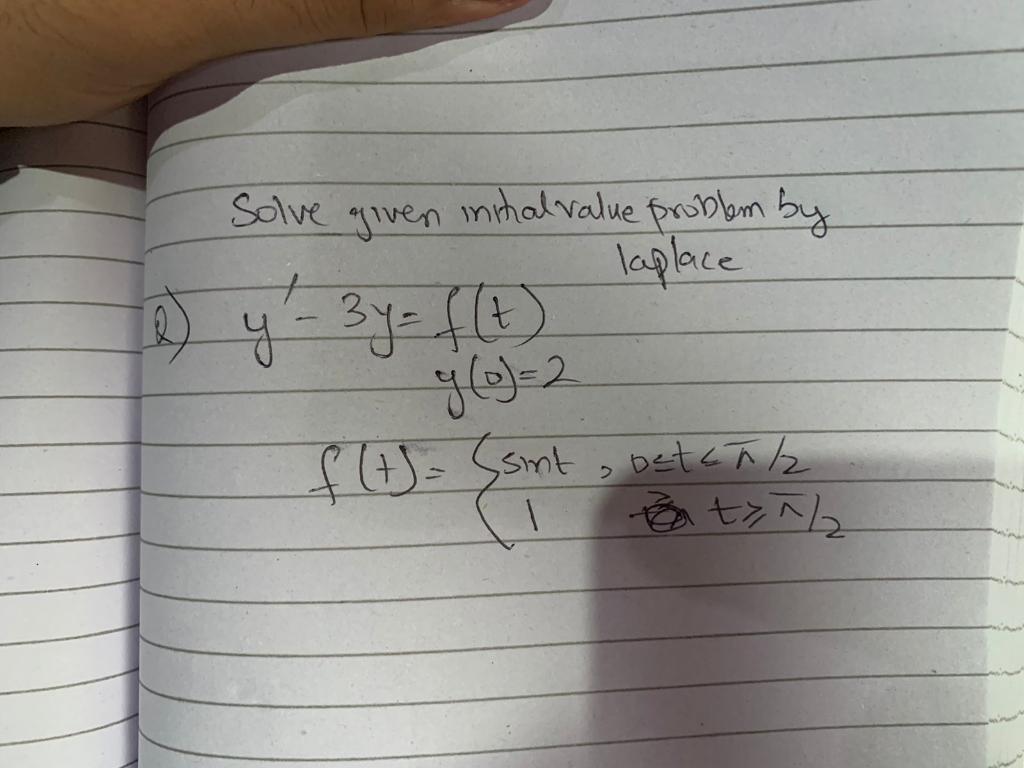 Solve given initial value problem by
laplace
Q) y' - 3y = f(t)
y(0) = 2
f(t) = { sint , 0≤t≤π/2
1 t≥π/2